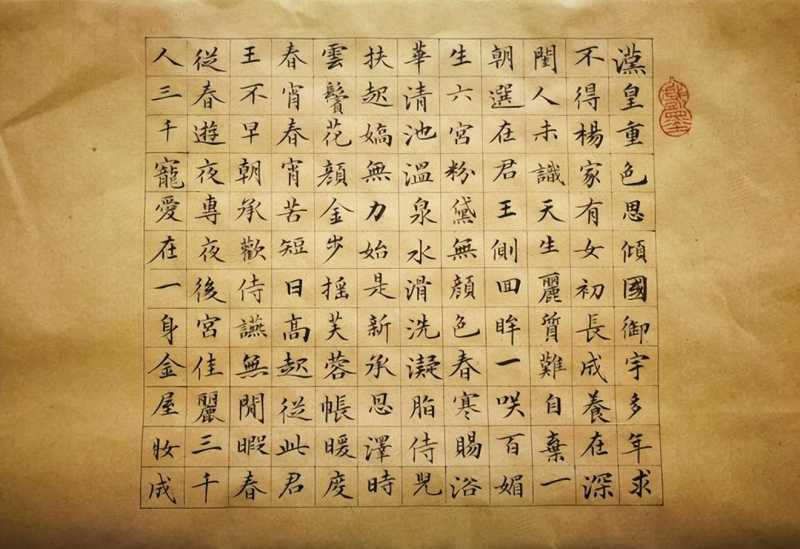 漢皇重色思傾國御宇多年求
不得楊家有女初長成養在深
閨人未識天生麗質難自棄一
朝選在君王側回眸一咲百媚
生六宮粉黛無顏色春寒賜浴
華清池溫泉水滑洗凝脂侍兒
扶起嬌無力始是新承恩澤時
雲鬢花顏金步搖芙蓉帳暖度
春宵春宵苦短日高起從此君
王不早朝承歡侍讌無閒暇春
從春遊夜專夜後宮佳麗三千
人三千寵愛在一身金屋妝成